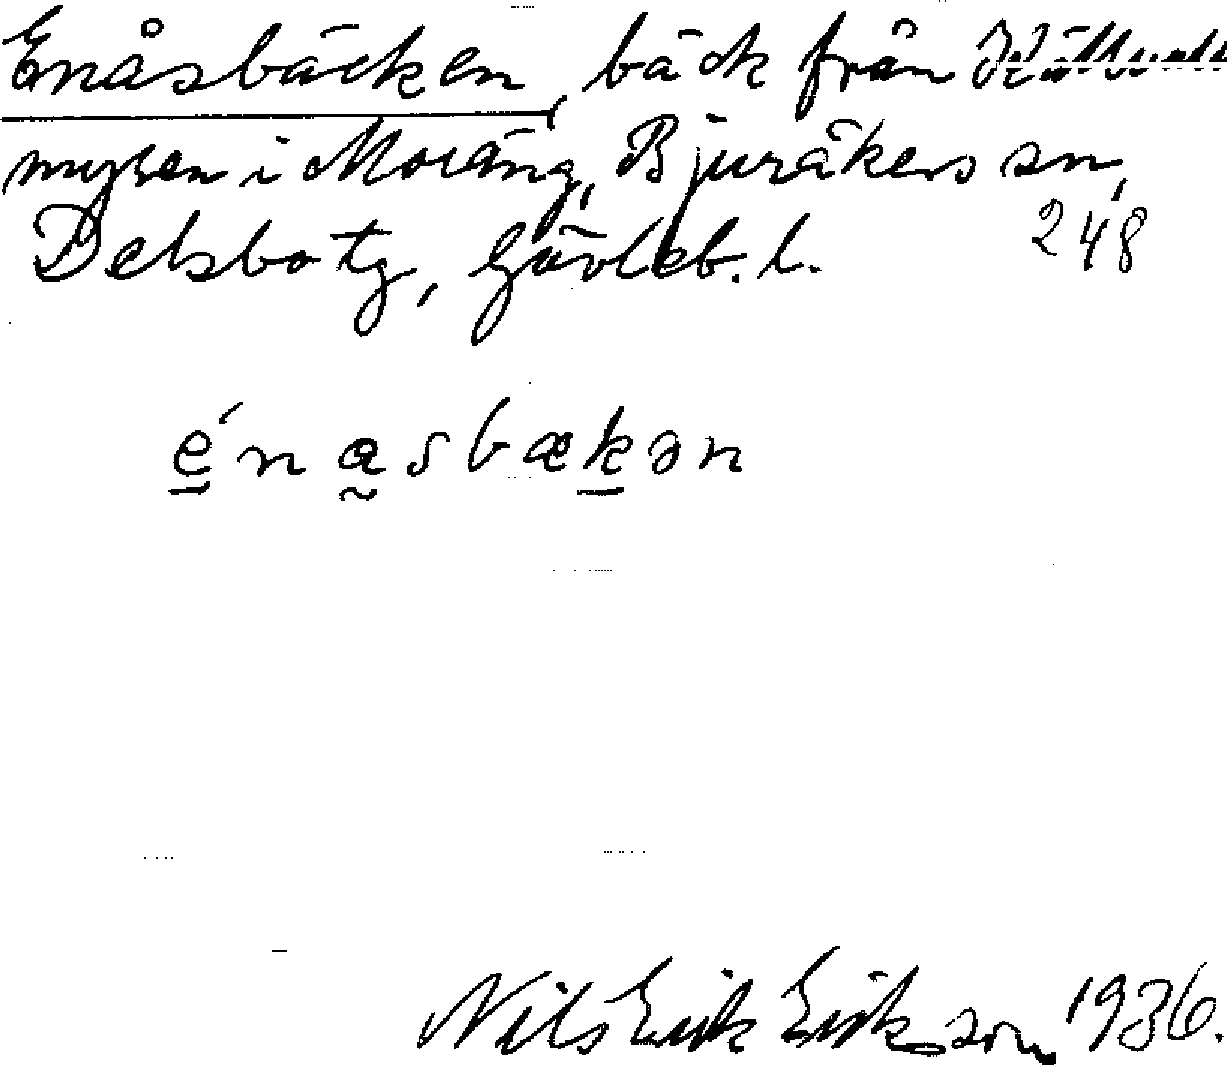 Enåsbäcken, bäck från
myren i Moräng, Bjuråkers sn,
Delsbo tg, Gävleb. l. 248
énasbækən
Nils Erik Eriksson 1936.